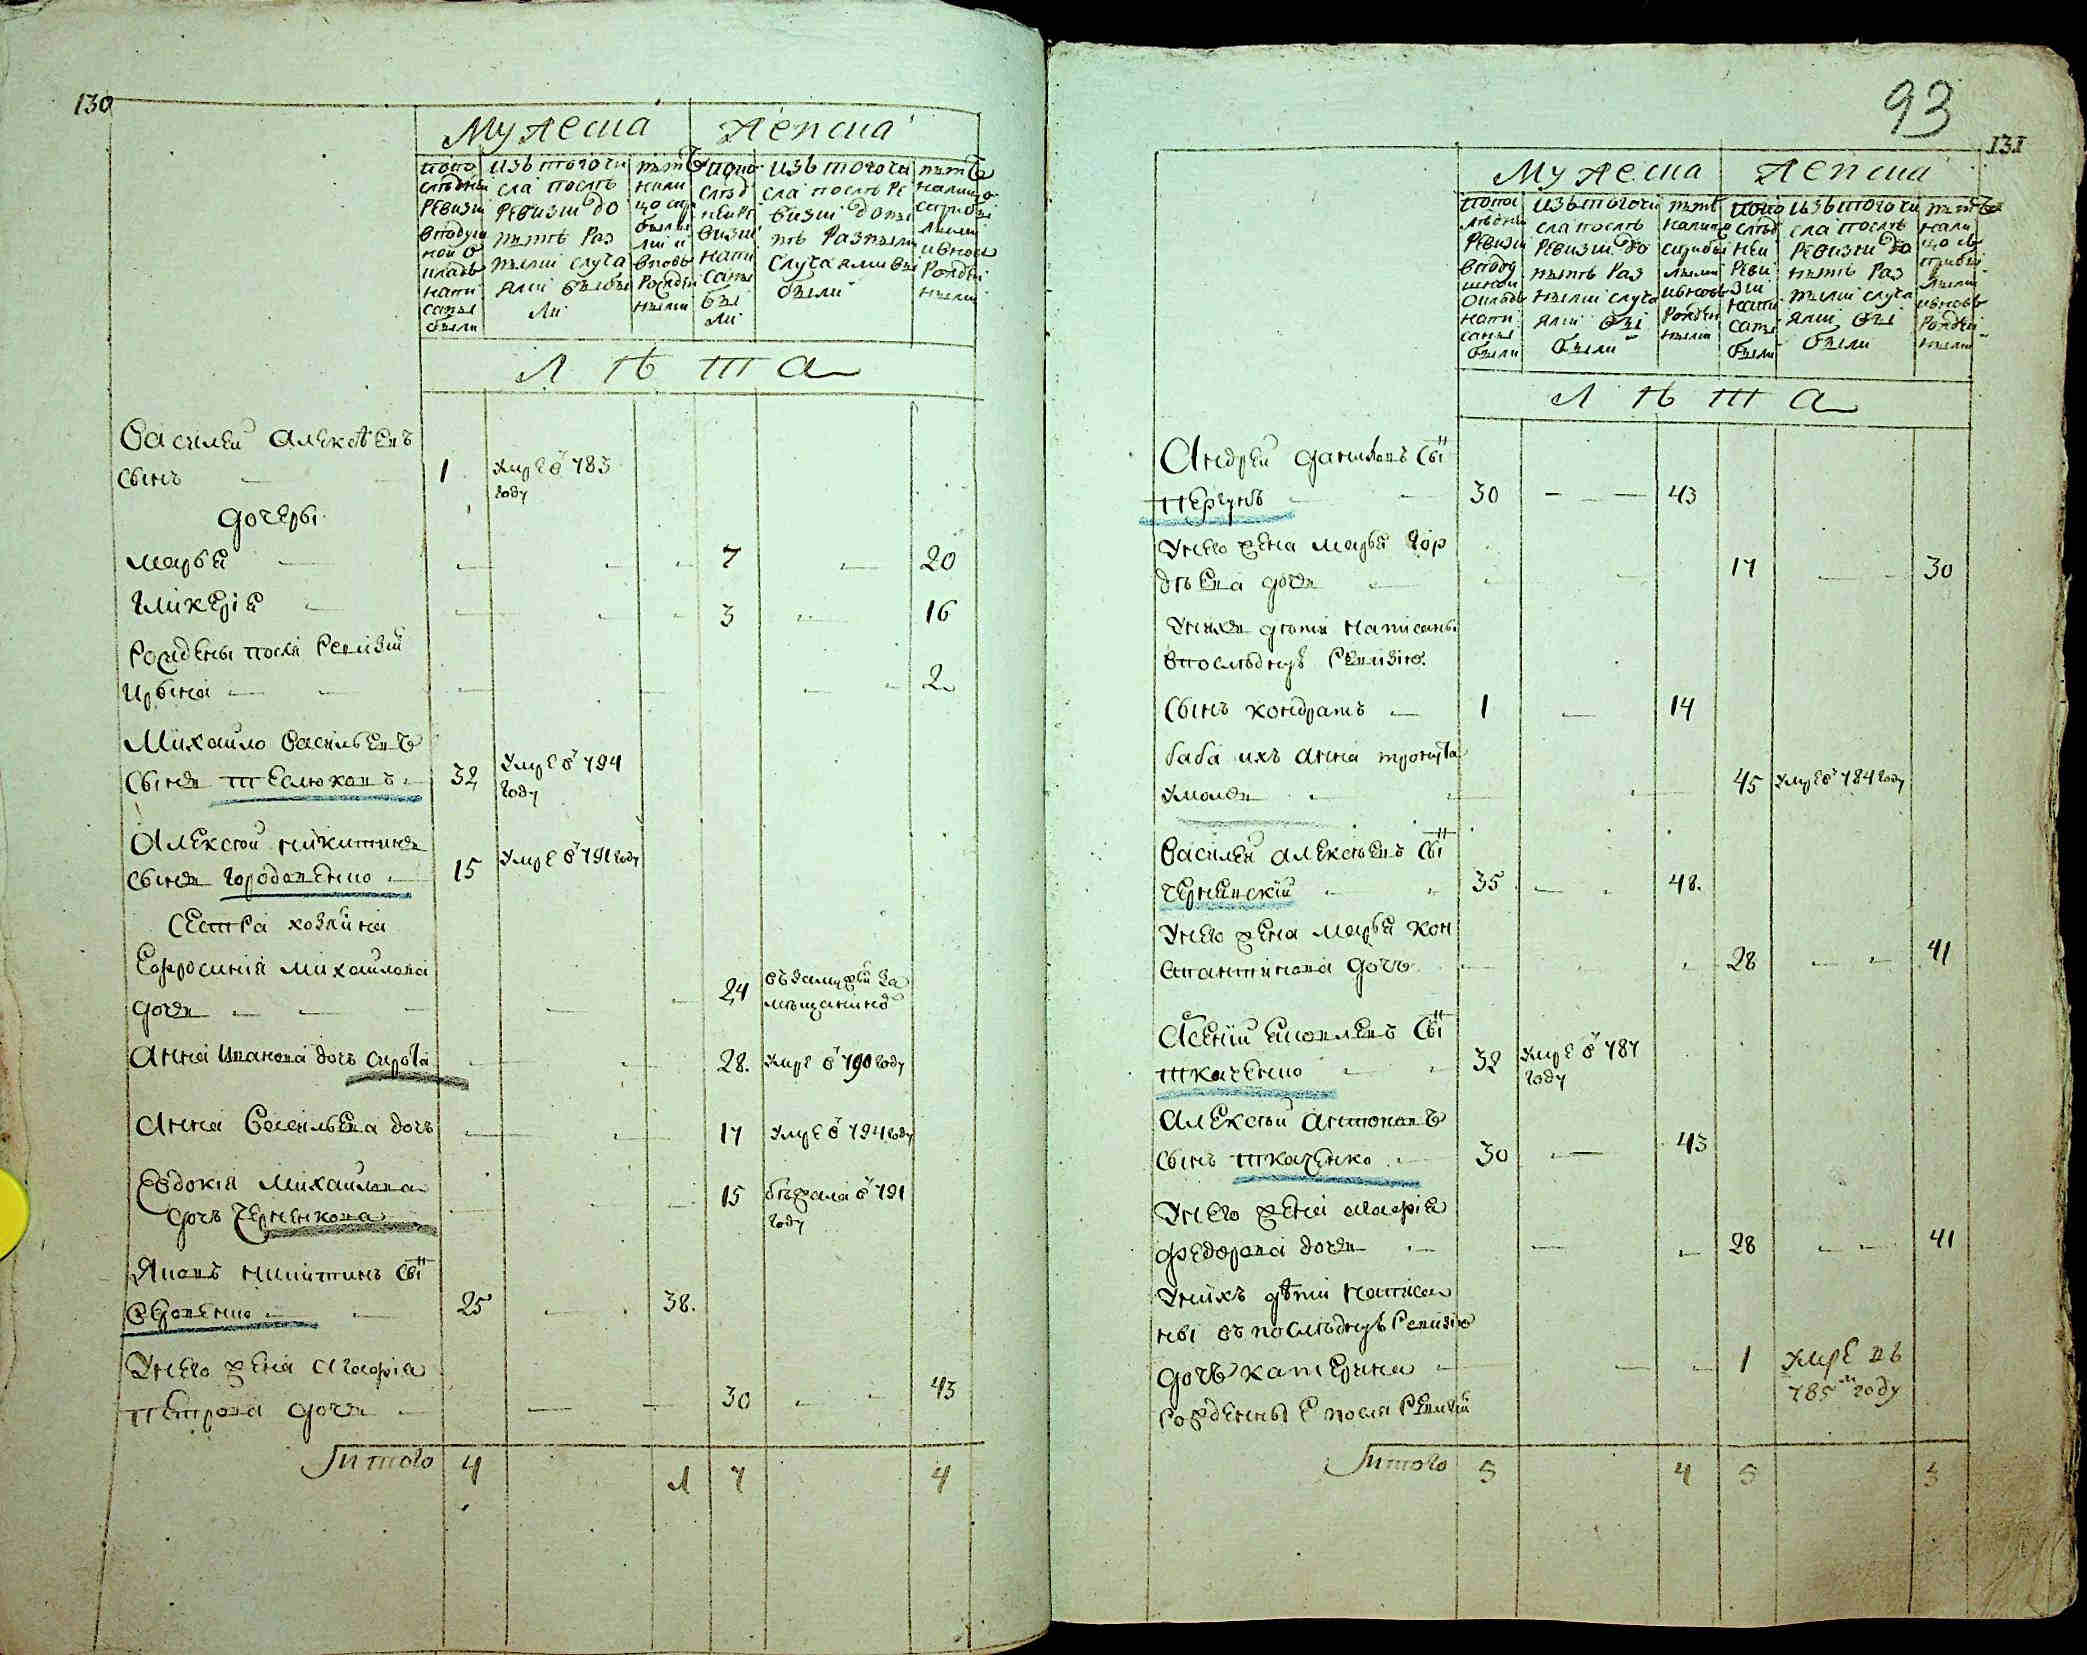 130
Мужеска Женска
попо слѣднеи ревизи вподуш ной о кладъ напи саны были
изъ того чи сла послѣ ревизии до нынѣ раз ными случа ями выбы ли
нынѣ нали цо съ при былы ми и вновь рожден ными
попо слѣд неи ре визии напи саны бы ли
изъ того чи сла послѣ ре визии до ны нѣ разными случаями вы были
нынѣ налицо сприбы лыми ивновь рожден ными
Лѣта
Василей Алексѣевъ
сынъ 1 умре в 783
году
дочери
Марья 7 20
Гликерiя 3 16
рождены после ревизiи
Ирына 2
Михайло Васильевъ
сынъ Теслюковъ 32 умре в 794
году
Алексѣй Никитинъ
сынъ Городовенко 15 умре в 791 году
сестра хозяина
Ефросинiя Михайлова
дочь 24 въ замужъи за
мѣщанином
Анна Иванова дочь сирота 28. умре в 790 году
Анна Васильева дочъ 17 умре в 794 году
Евдокiя Михайлова
дочъ Черненкова 15 бѣжала в 791
году
Яковъ Никитинъ сын
25 38.
У него жена Агафiя
Петрова дочь 30 43
Итого 4 1 7 4
93
131
Мужеска Женска
попос лѣдней ревизи вподу шной окладъ напи саны были
изъ того чи сла послѣ ревизии до нынѣ раз ными случа ями вы были
нынѣ налицо сприбы лыми ивновь рожден ными
попо слѣд ней реви зии напи саны были
изъ того чи сла послѣ ревизии до нынѣ раз ными случа ями вы были
нынѣ нали цо съ прибы лыми ивновь рожден ными
Лѣта
Андрей Даниловъ сын
Пергунъ 30 43
У него жена Марья Гор
дѣева дочь 17 30
У них дѣти написаны
впослѣднуъ ревизiю.
сынъ Кондратъ 1 14
баба ихъ Анна
45 умре в 784 году
Василей Алексѣевъ сын
Черневскiй 35 48.
У него жена Марья Кон
стантинова дочъ 28 41
Асенiй Яковлевъ сын
Ткаченко 32 умре в 787
году
Алексѣй Антоновъ
сынъ Ткаченко 30 43
У него жена Агафiя
Федорова дочь 28 41
У нихъ дѣти написа
ны въ послѣднуъ ревизiю
дочъ Катерина 1 умре въ
785м году
рожденны е после ревизiй
Итого 5 4 5 3